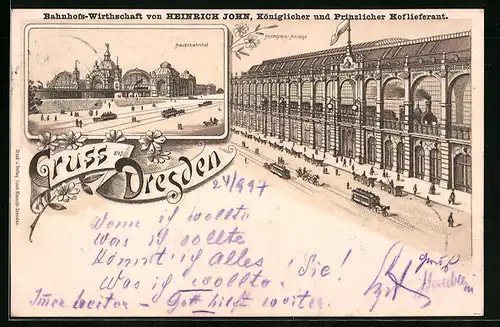 Bahnhofs-Wirthschaft von HEINRICH JOHN, Königlicher und Prinzlicher Hoflieferant.
Hauptbahnhof
Hochgleis-Anlage
Gruss aus
Dresden
24/9 97
Wenn ich wollte
Was ich sollte
Könnt ich alles
Was ich wollte. Sie!
Immer weiter - Gott hilft weiter.
Gruß